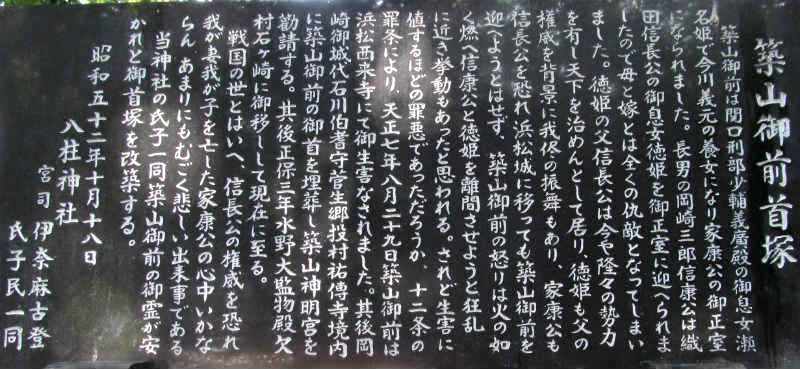 築山御前首塚
築山御前は関口刑部少輔義廣殿の御息女瀬
名姫で今川義元の養女になり家康公の御正室
になられました。長男の岡崎三郎信康公は織
田信長公の御息女徳姫を御正室に迎へられま
したので母と嫁とは全くの仇敵となってしまい
ました。徳姫の父信長公は今や隆々の勢力
を有し天下を治めんとして居り、徳姫も父の
権威を背景に我侭の振舞もあり、家康公も
信長公を恐れ浜松城に移っても築山御前を
迎へようとはせず、築山御前の怒りは火の如
く燃へ信康公と徳姫を離間させようと狂乱
に近き挙動もあったと思われる。されど生害に
値するほどの罪悪であっただろうか、十二条の
罪条により、天正七年八月二十九日築山御前は
浜松西来寺にて御生害なされました。其後岡
崎御城代石川伯耆守菅生郷投村祐傳寺境内
に築山御前の御首を埋葬し築山神明宮を
勧請する。其後正保三年水野大監物殿欠
村石ヶ崎に御移しして現在に至る。
戦国の世とはいへ、信長公の権威を恐れ
我が妻我が子を亡した家康公の心中いかな
らん あまりにもむごく悲しい出来事である
当神社の氏子一同築山御前の御霊が安
かれと御首塚を改築する。
昭和五十二年十月十八日
八柱神社
宮司 伊奈麻古登
氏子民一同